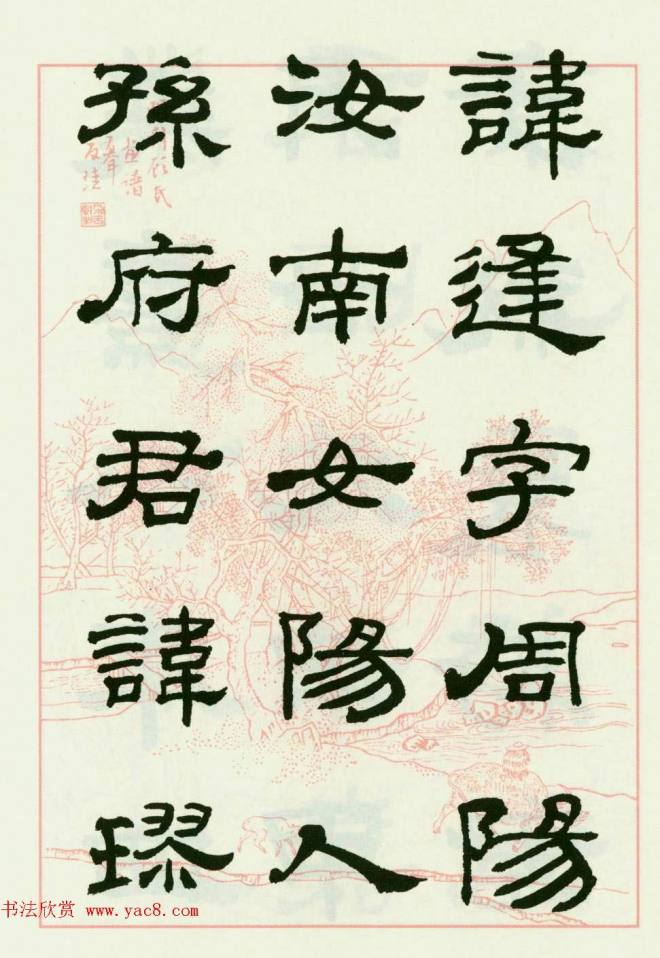 諱逢字周陽
汝南女陽人
孫府君諱璆
顧氏
畫譜
书法欣赏 www.yac8.com